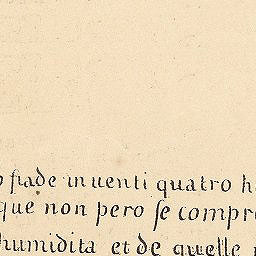 fiade in uenti quatro h
que non pero ſe compr
humidita et de quelle